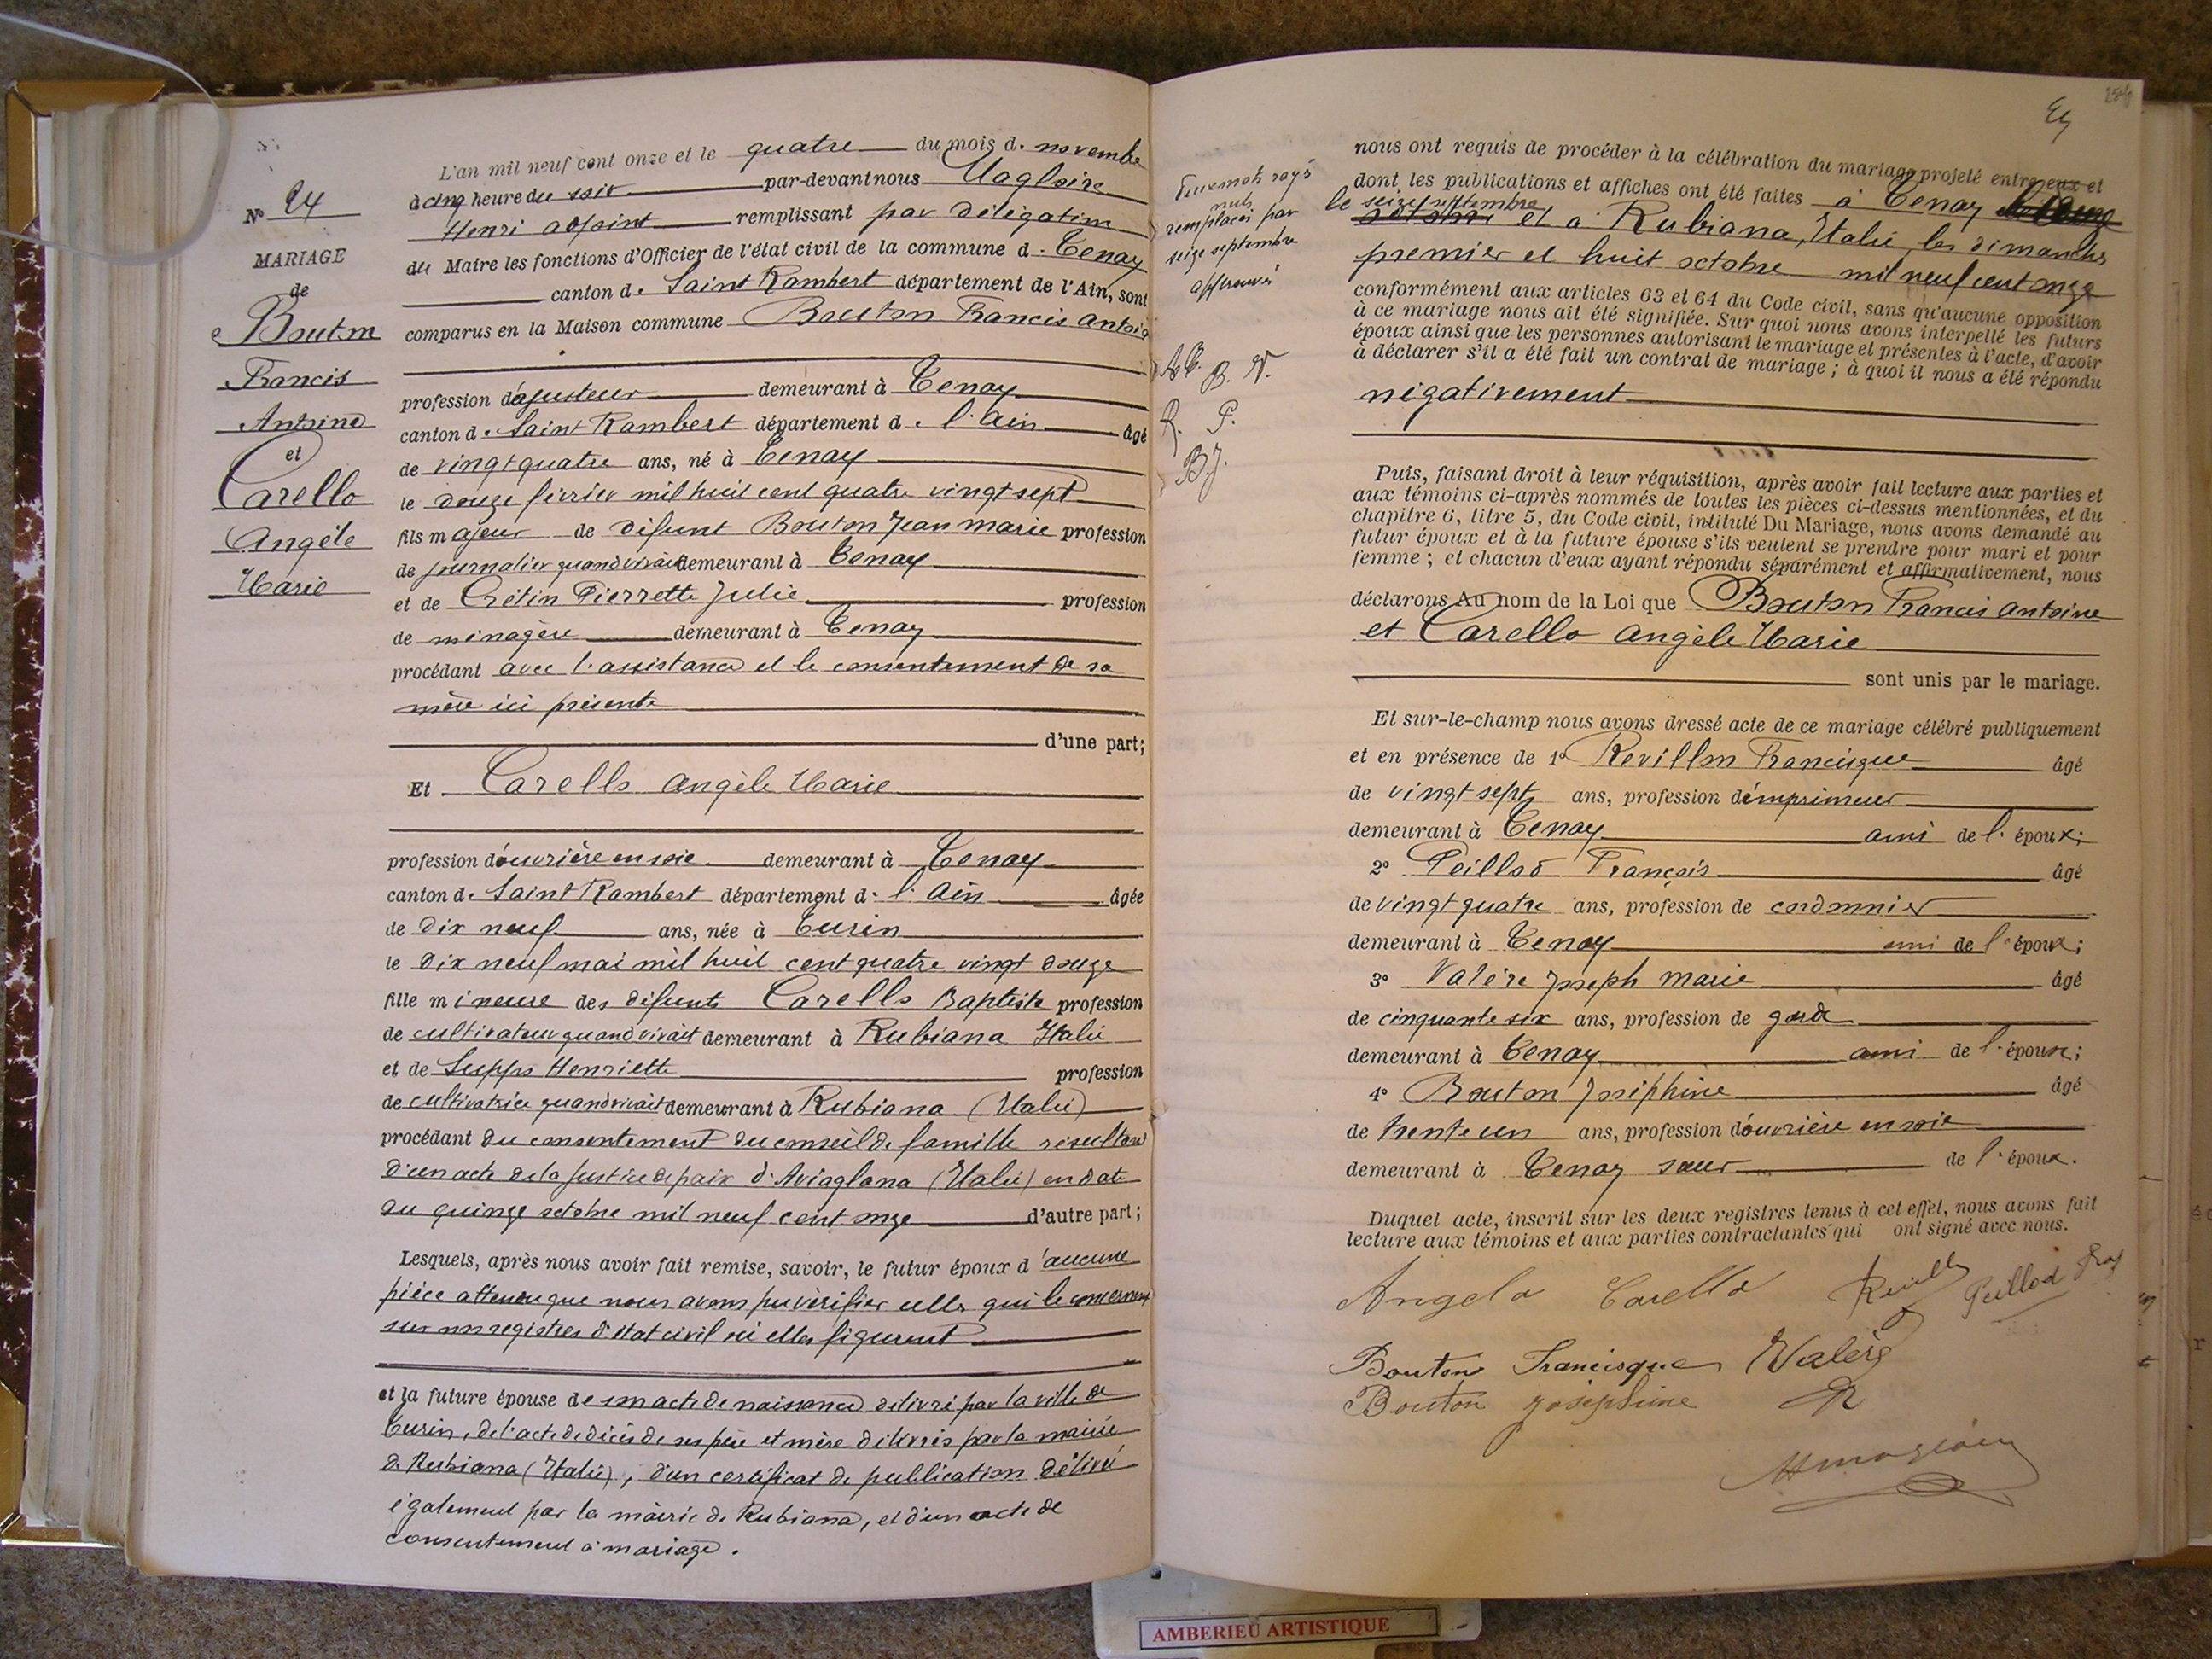 N° 24
MARIAGE
de
Bouton
Francis
Antoine
et
Carello
Angèle
Marie
L'an mil neuf cent onze et le quatre du mois d. novembre
à cinq heure du soir par-devant nous Magloire
Henri adjoint remplissant par délégation
du Maire les fonctions d'Officier de l'état civil de la commune d. Tenay
canton d. Saint Rambert département de l'Ain, sont
comparus en la Maison commune Bouton Francis Antoine
profession d'ajusteur demeurant à Tenay
canton d. Saint Rambert département d. l'Ain âgé
de vingt quatre ans, né à Tenay
le douze février mil huit cent quatre vingt sept
fils majeur de défunt Bouton Jean Marie profession
de journalier quand vivait demeurant à Tenay
et de Crétin Pierrette Julie profession
de ménagère demeurant à Tenay
procédant avec l'assistance et le consentement de sa
mère ici présente
d'une part;
Et Carello Angèle Marie
profession d'ouvrière en soie demeurant à Tenay
canton d. Saint Rambert département d. l'Ain âgée
de dix neuf ans, née à Turin
le dix neuf mai mil huit cent quatre vingt douze
fille mineure des défunts Carello Baptiste profession
de cultivateur quand vivait demeurant à Rubiana Italie
et de Suppo Henriette profession
de cultivatrice quand vivait demeurant à Rubiana (Italie)
procédant du consentement du conseil de famille résultant
d'un acte de la justice de paix d'Aviaglana (Italie) en date
du quinze octobre mil neuf cent onze d'autre part;
Lesquels, après nous avoir fait remise, savoir, le futur époux d'aucune
pièce attendu que nous avons pu vérifier celles qui le concernent
sur nos registres d'état civil où elles figurent
et la future épouse de son acte de naissance délivré par la ville de
Turin, de l'acte de décès de ses père et mère délivrés par la mairie
de Rubiana (Italie), d'un certificat de publication délivré
également par la mairie de Rubiana, et d'un acte de
consentement à mariage.
Deux mots rayés
nuls
remplacés par
seize septembre
approuvés
A C. B. V.
R. P.
B J.
nous ont requis de procéder à la célébration du mariage projeté entre eux et
dont les publications et affiches ont été faites à Tenay
le seize septembre et à Rubiana, Italie, les dimanches
premier et huit octobre mil neuf cent onze
conformément aux articles 63 et 64 du Code civil, sans qu'aucune opposition
à ce mariage nous ait été signifiée. Sur quoi nous avons interpellé les futurs
époux ainsi que les personnes autorisant le mariage et présentes à l'acte, d'avoir
à déclarer s'il a été fait un contrat de mariage; à quoi il nous a été répondu
négativement
Puis, faisant droit à leur réquisition, après avoir fait lecture aux parties et
aux témoins ci-après nommés de toutes les pièces ci-dessus mentionnées, et du
chapitre 6, titre 5, du Code civil, intitulé Du Mariage, nous avons demandé au
futur époux et à la future épouse s'ils veulent se prendre pour mari et pour
femme; et chacun d'eux ayant répondu séparément et affirmativement, nous
déclarons Au nom de la Loi que Bouton Francis Antoine
et Carello Angèle Marie
sont unis par le mariage.
Et sur-le-champ nous avons dressé acte de ce mariage célébré publiquement
et en présence de 1° Revillon Francisque âgé
de vingt sept ans, profession d'imprimeur
demeurant à Tenay ami de l. époux;
2° Peillod François âgé
de vingt quatre ans, profession de cordonnier
demeurant à Tenay ami de l'époux;
3° Valère Joseph Marie âgé
de cinquante six ans, profession de garde
demeurant à Tenay ami de l. épouse;
4° Bouton Joséphine âgé
de trente un ans, profession d'ouvrière en soie
demeurant à Tenay sœur de l. époux.
Duquel acte, inscrit sur les deux registres tenus à cet effet, nous avons fait
lecture aux témoins et aux parties contractantes qui ont signé avec nous.
Angela Carello Peillod
Bouton Francisque Valère
Bouton Joséphine
AMBERIEU ARTISTIQUE